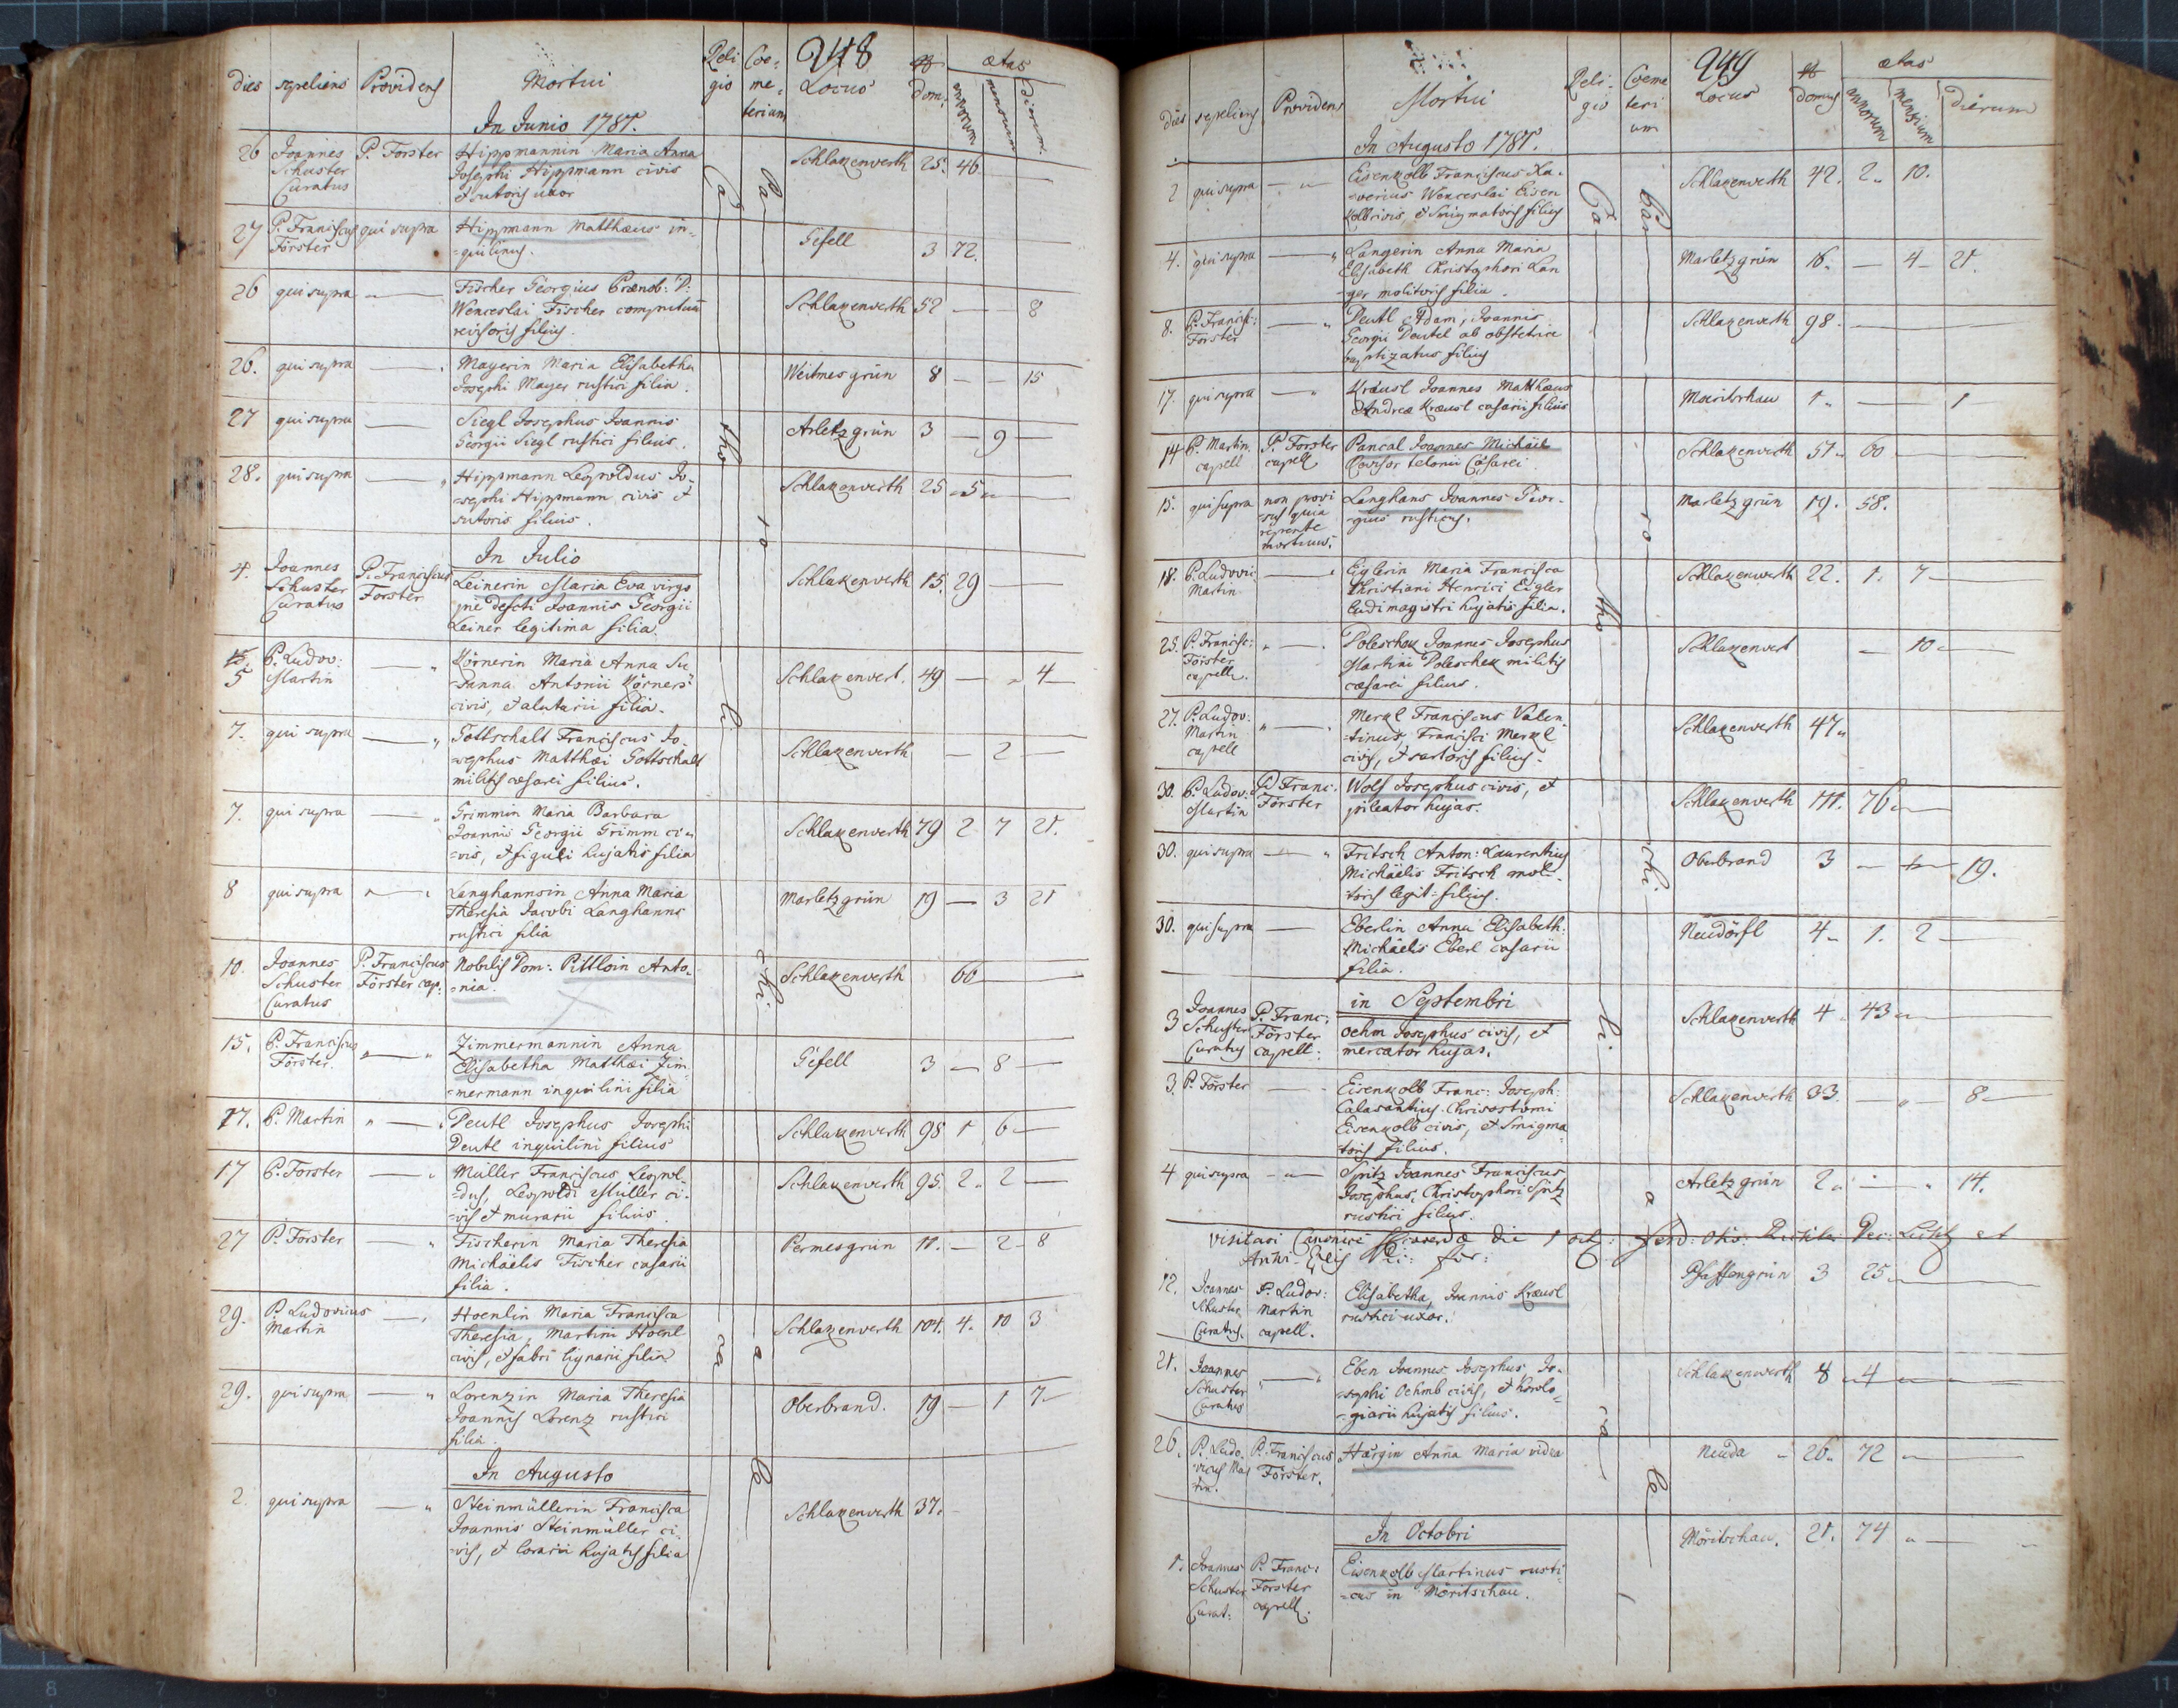 dies sepeliens Providens Mortui Religio Coemeterium 248 Locus № dom: ætas annorum mensium dierum
In Junio 1781.
26 Joannes P. Forster Hippmannin Maria Anna Schlakenwerth 25. 46.
Schuster Josephi Hippmann civis
Curatus et sutoris uxor
27 P. Franciscus qui supra Hippmann Matthæus in= Gefell 3 72.
Förster =quilinus.
26 qui supra Fischer Georgius Prænob: D: Schlakenwerth 52 8
Wenceslai Fischer computuũ
revisoris filius.
26. qui supra Mayerin Maria Elisabetha Weitmesgrün 8 15
Josephi Mayer rustici filia.
27 qui supra Siegl Josephus Joannis Arletzgrün 3 9
Georgii Siegl rustici filius.
28. qui supra Hippmann Leopoldus Jo= Schlakenwerth 25 5
=sephi Hippmann civis et
sutoris filius.
In Julio
4. Joannes P. Franciscus Leinerin Maria Eva virgo Schlakenwerth 15. 29
Schuster Forster pie defcti Joannis Georgii
Curatus Leiner legitima filia.
5 P. Ludov: Körnerin Maria Anna Su Schlakenwert. 49 4
Martin =sanna Antonii Körners
civis, et alutarii filia.
7. qui supra Gottschalt Franciscus Jo= Schlakenwerth 2
=sephus Matthæi Gottschalt
militis cæsarei filius.
7. qui supra Grimmin Maria Barbara Schlakenwerth 79 2 7 21.
Joannis Georgii Grimm ci=
=vis, et figuli hujatis filia
8 qui supra Langhannsin Anna Maria Marletzgrün 19 3 21
Theresia Jacobi Langhanns
rustici filia
10. Joannes P. Franciscus Nobilis Dom: Pittloin Anto= Schlakenwerth 66
Schuster Förster cap: =nia.
Curatus
15. P. Franciscus Zimmermannin Anna Gefell 3 8
Förster. Elisabetha Matthæi Zim=
=mermann inquilini filia
17. P. Martin Deutl Josephus Josephi Schlakenwerth 98 1 6
Deutl inquilini filius
17 P. Forster Müller Franciscus Leopol= Schlakenwerth 95. 2. 2
=dus, Leopoldi Müller ci=
=vis et murarii filius.
27 P. Forster Fischerin Maria Theresia Permesgrün 11. 2 8
Michäelis Fischer casarii
filia.
29. P. Ludovicus Hoenlin Maria Francisca Schlakenwerth 104. 4. 10 3
Martin Theresia, Martini Hoenl
civis, et fabri lignarii filia
29. qui supra Lorenzin Maria Theresia Oberbrand. 19 1 7
Joannis Lorenz rustici
filia.
In Augusto
2. qui supra Steinmüllerin Francisca Schlakenwerth 37.
Joannis Steinmüller ci=
=vis, et lorarii hujatis filia
Catholica
Parochiale
dies sepeliens Providens Mortui Religio Coemeterium 249 Locus № domus ætas annorum mensium dierum
In Augusto 1781.
2 qui supra Eisenkolb Franciscus Xa= Schlakenwerth 42. 2. 10.
=verius Wenceslai Eisen
kolb civis, et Smigmatoris filius
4. qui supra Langerin Anna Maria Marletzgrün 16. 4 21.
Elisabeth Christophori Lan
=ger molitoris filia.
8. P. Francisc: Deutl Adam, Joannis Schlakenwerth 98.
Förster Georgii Deutel ab obstetrice
baptizatus filius
17. qui supra Kräusl Joannes Matthæus Moeritschau 1. 1
Andreæ Kräusl casarii filius
14 P. Martin P. Förster Pancal Joannes Michäel Schlakenwerth 51. 60
capell capell Revisor telonii Cæsarei
15. qui supra non provi Langhans Joannes Geor= Marletzgrün 19. 58.
=sus quia =gius rusticus.
repente
mortuus.
18. P. Ludovic: Eiglerin Maria Francisca Schlakenwerth 22. 1. 7
Martin Christiani Henrici Eigler
ludimagistri hujatis filia.
25. P. Francisc: Poleschek Joannes Josephus Schlakenwert 10
Förster Martini Poleschek militis
capell. cæsarei filius.
27. P. Ludov: Merkl Franciscus Valen= Schlakenwerth 47.
Martin =tinus, Francisci Merkl
capell civis, et sartoris filius.
30. P. Ludov: P Franc: Wolf Josephus civis, et Schlakenwerth 111. 76
Martin Förster pileator hujas.
30. qui supra Fritsch Anton: Laurentius Oberbrand 3 19.
Michäelis Fritsch moli=
=toris legit: filius.
30. qui supra Eberlin Anna Elisabeth: Neudörfl 4. 1. 2
Michäelis Eberl casarii
filia.
in Septembri
3 Joannes P. Franc: Oehm Josephus civis, et Schlakenwerth 4 43
Schuster Förster mercator hujas.
Curatus capell:
3. P. Förster Eisenkolb Franc: Joseph: Schlakenwerth 33. 8
Calasantius Chrisostomi
Eisenkolb civis, et Smigma
=toris filius.
4 qui supra Spitz Joannes Franciscus Arletzgrün 2. 14.
Josephus, Christophori Spitz
rustici filius.
visitavi Canonice die 1 oct:
12. Joannes P. Ludov: Elisabetha, Joannis Kræusl Pfaffengrün 3 25
Schuster Martin rustici uxor.
Curatus. capell.
21. Joannes Eben Joannes Josephus Jo= Schlakenwerth 8 4
Schuster =sephi Oehmb civis, et horolo=
Curatus =giarii hujatis filius.
26. P. Ludo P. Franciscus Härgin Anna Maria vidua Neuda 26. 72
vicus Mar Förster.
tin.
In Octobri
1. Joannes P. Franc: Eisenkolb Martinus rusti= Möritschau. 21. 74
Schuster Forster =cus in Möritschau.
Curat: capell.
Catholica
Parochiale